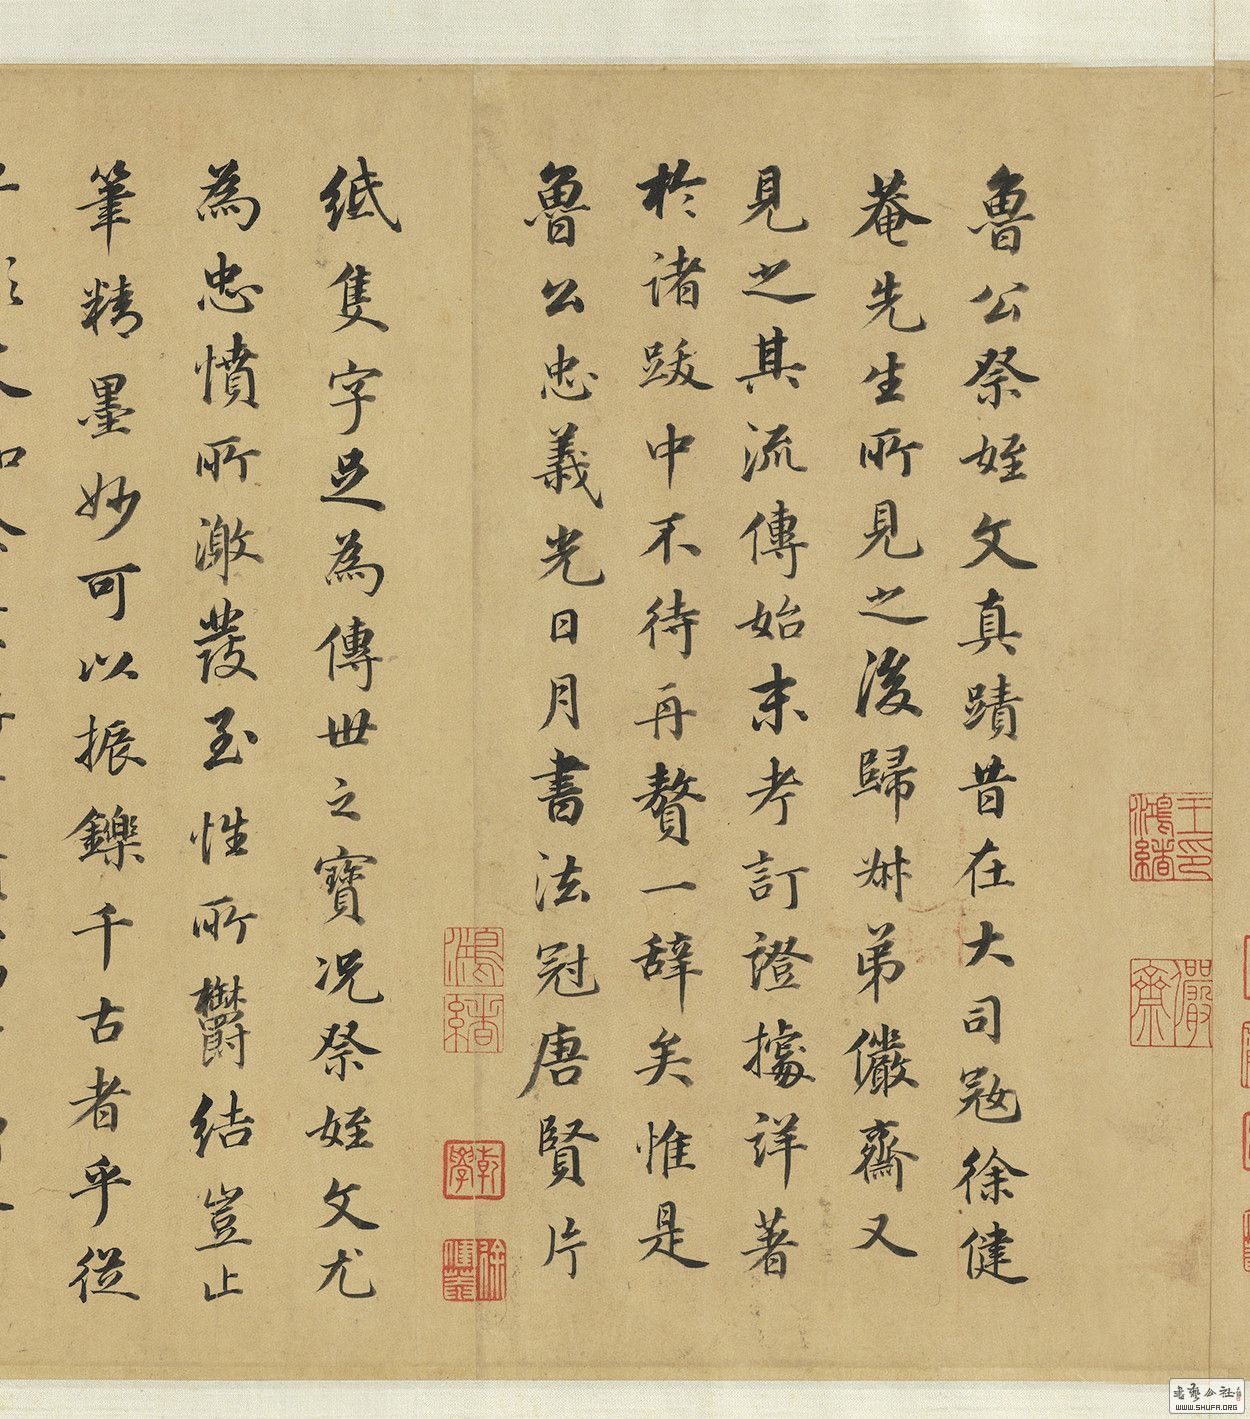 魯公祭姪文真蹟昔在大司寇徐健
菴先生所見之後歸叔弟儼齋又
見之其流傳始末考訂證據詳著
於諸跋中不待再贅一辭矣惟是
魯公忠義光日月書法冠唐賢片
紙隻字足為傳世之寶況祭姪文尤
為忠憤所激發至性所鬱結豈止
筆精墨妙可以振鑠千古者乎從
王印鴻緒
儼齋
鴻緒
乾學
徐健菴
書藝公社
WWW.SHUFA.ORG